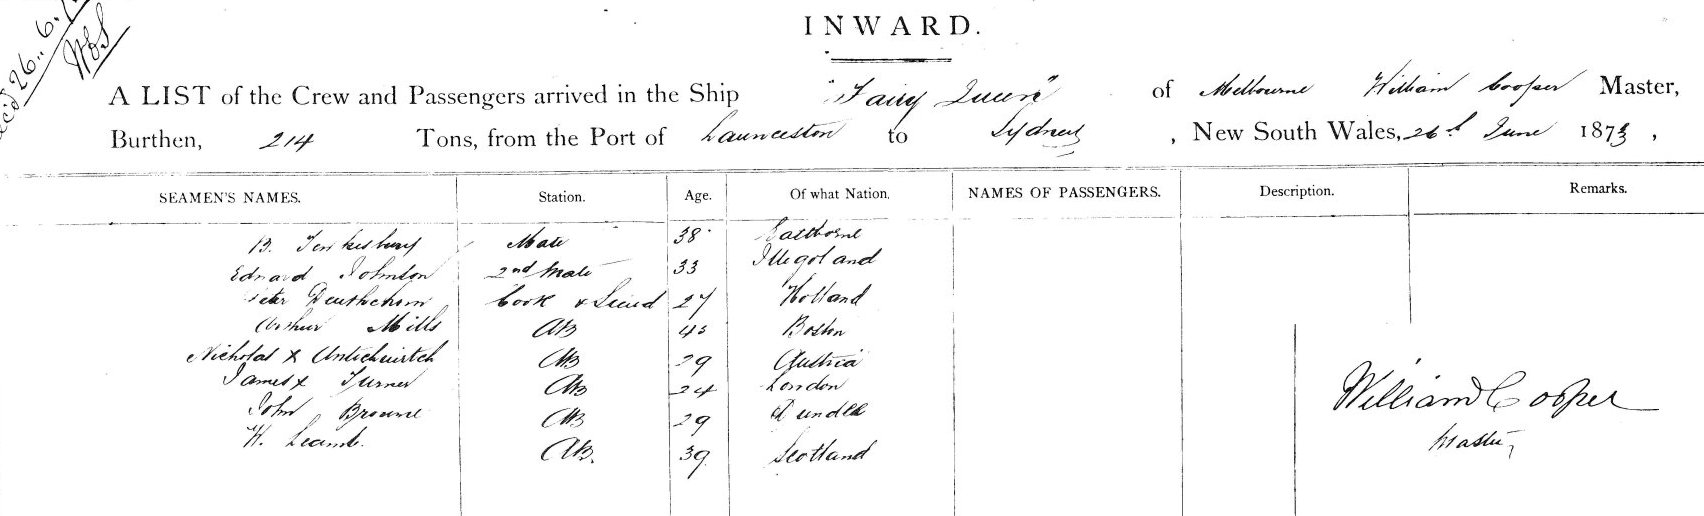 INWARD.
26..6.
A LIST of the Crew and Passengers arrived in the Ship "Fairy Queen" of Melbourne William Cooper Master,
Burthen, 214 Tons, from the Port of Launceston to Sydney, New South Wales, 26th June 1873,
SEAMEN'S NAMES. Station. Age. Of what Nation. NAMES OF PASSENGERS. Description. Remarks.
B. Tewkesbury Mate 38
Edward Johnson 2nd Mate 33
Peter Cook & Stewd 27 Holland
Arthur Mills AB Boston
Nicholas x AB 29 Austria
James x Turner AB 24 London
John Browne AB 29 Dundee
W. AB. 39 Scotland
William Cooper
Master